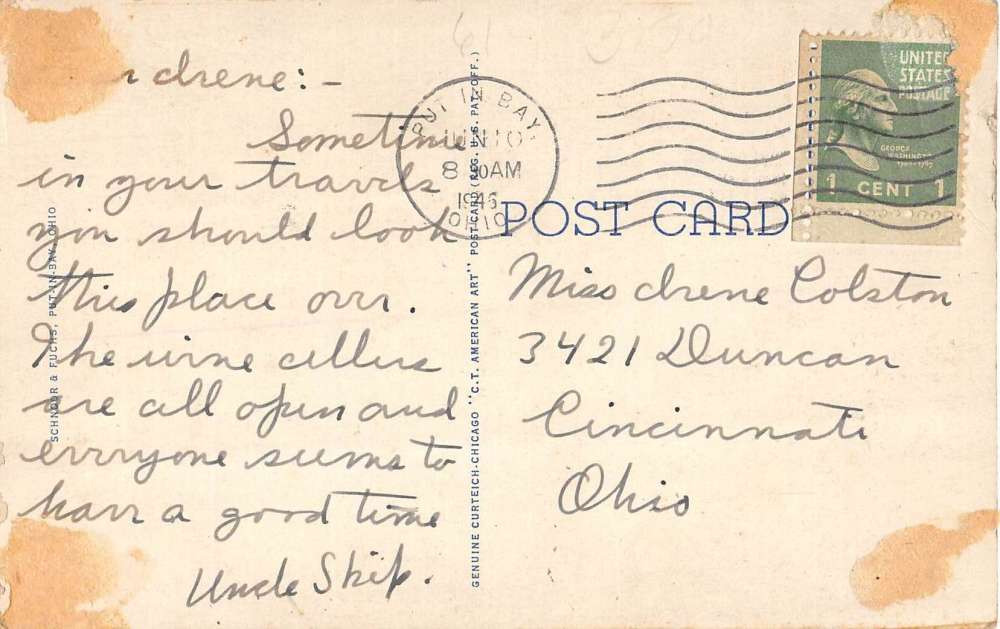 Irene:-
Sometime
in your travels
you should look
this place over.
The wine cellers
are all open and
everyone seems to
have a good time
Uncle Skip.
SCHNOOR & FUCHS, PUT-IN-BAY, OHIO
GENUINE CURTEICH-CHICAGO "C.T. AMERICAN ART" POST CARD (REG. U.S. PAT. OFF.)
PUT IN BAY,
JUN 10
8 AM
1946
OHIO
POST CARD
UNITED
STATES
POSTAGE
GEORGE
WASHINGTON
1 CENT 1
Miss Irene Colston
3421 Duncan
Cincinnati
Ohio